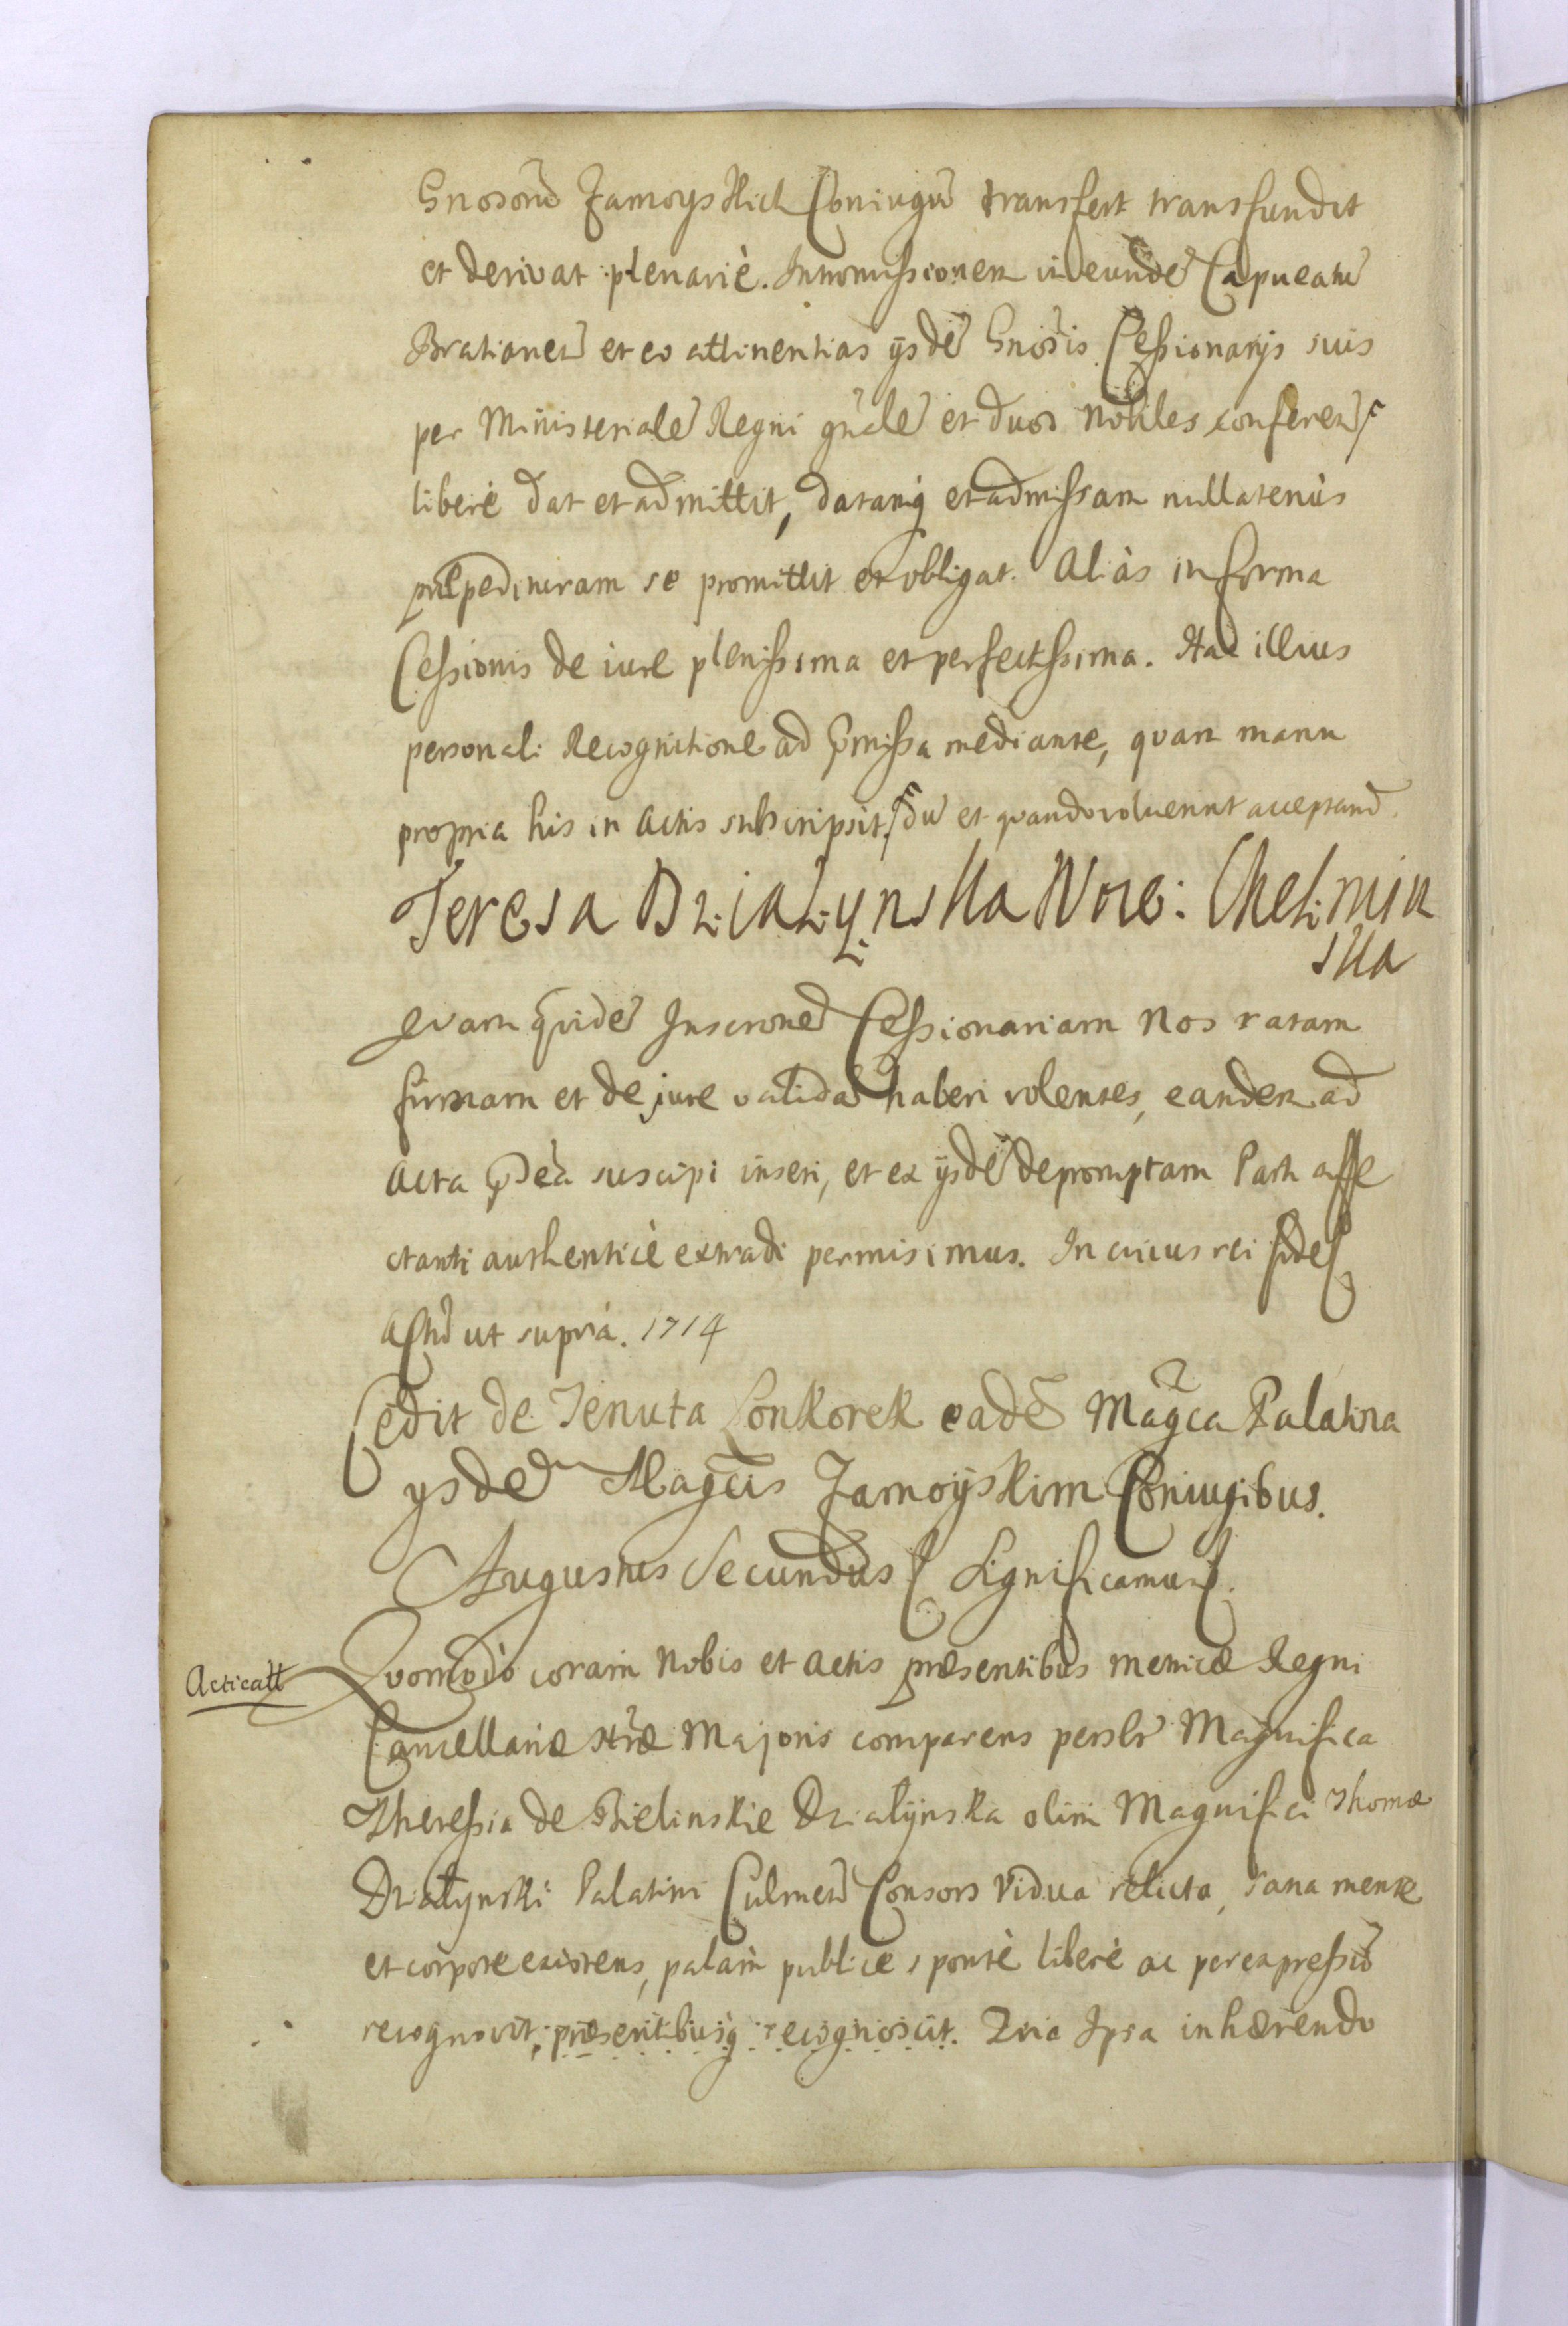 Gnosorũ Zamoyskich Coniugũ transfert transfundit
et derivat plenariè. Intromissionem in eundẽ Capneatũ
Bratianeñ et eo attinentias ijsdẽ Gnosis Cessionarijs suis
per Ministerialẽ Regni gñalẽ et duos Nobiles conferen̄
liberè dat et admittit, datamq; et admissam nullatenùs
impedituram se promittit et obligat. Aliàs in forma
Cessionis de iure plenissima et perfectissima. Hac illius
personali Recognitione ad p̃missa mediante, quam manu
propria his in Actis subscripsit. dũ et quando voluerint acceptand̃
Teresa Działynska Woie: Chełmin
ska
Quam quidẽ Inscronẽ Cessionariam Nos ratam
firmam et de jure validã haberi volentes, eandem ad
Acta p̃sẽa suscipi inseri, et ex ijsdẽ depromptam Parti affe
ctanti authenticè extradi permisimus. In cuius rei fidẽ
Actũ ut suprà. 1714
Cedit de Tenuta Lonkorek eadẽ Magca Palatina
ysdẽ Magcis Zamoÿskim Coniugibus.
Augustus Secundus Significamus.
Acticatt
Quomodò coram Nobis et Actis præsentibus metricæ Regni
Cancellariæ Nr̃æ Majoris comparens perslr Magnifica
Theressia de Bielinskie Dzialÿnska olim Magnifici Thomæ
Działynski Palatini Culmeñ Consors Vidua relicta, sana mente
et corpore existens, palàm publicè spontè liberè ac per expressũ
recognovit, præsentibusq; recognoscit. Quia Ipsa inhærendo